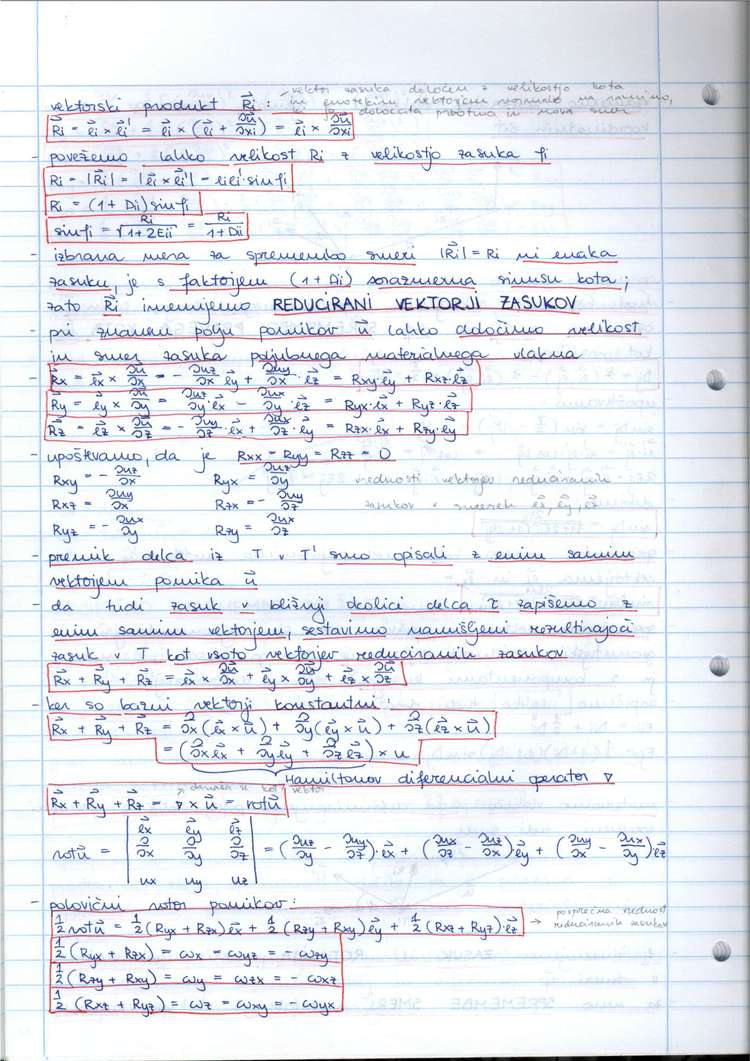 vektorski produkt R⃗i : - vektor zasuka določen z velikostjo kota
in enotskim vektorjem normale na ravnino,
ki jo določata prvotna in nova smer
R⃗i = e⃗i × e⃗i' = e⃗i × (e⃗i + ∂u⃗/∂xi) = e⃗i × ∂u⃗/∂xi
- povežemo lahko velikost Ri z velikostjo zasuka fi
Ri = |R⃗i| = |e⃗i × e⃗i'| = ei ei' sin fi
Ri = (1 + Dii) sin fi
sin fi = Ri/√1+2Eii = Ri/1+Dii
- izbrana mera za spremembo smeri |R⃗i| = Ri ni enaka
zasuku, je s faktorjem (1 + Di) sorazmerna sinusu kota ;
zato R⃗i imenujemo REDUCIRANI VEKTORJI ZASUKOV
- pri znanem polju pomikov u⃗ lahko določimo velikost
in smer zasuka poljubnega materialnega vlakna
R⃗x = e⃗x × ∂u⃗/∂x = - ∂uz/∂x e⃗y + ∂uy/∂x · e⃗z = Rxy·e⃗y + Rxz·e⃗z
R⃗y = e⃗y × ∂u⃗/∂y = ∂uz/∂y e⃗x - ∂ux/∂y · e⃗z = Ryx·e⃗x + Ryz·e⃗z
R⃗z = e⃗z × ∂u⃗/∂z = - ∂uy/∂z · e⃗x + ∂ux/∂z · e⃗y = Rzx·e⃗x + Rzy·e⃗y
- upoštevamo, da je Rxx = Ryy = Rzz = 0
Rxy = - ∂uz/∂x Ryx = ∂uz/∂y
Rxz = ∂uy/∂x Rzx = - ∂uy/∂z
Ryz = - ∂ux/∂y Rzy = ∂ux/∂z
vrednosti vektorjev reduciranih
zasukov v smereh e⃗x, e⃗y, e⃗z
- premik delca iz T v T' smo opisali z enim samim
vektorjem pomika u⃗
- da tudi zasuk v bližnji okolici delca T zapišemo z
enim samim vektorjem, sestavimo namišljeni rezultirajoči
zasuk v T kot vsoto vektorjev reduciranih zasukov
R⃗x + R⃗y + R⃗z = e⃗x × ∂u⃗/∂x + e⃗y × ∂u⃗/∂y + e⃗z × ∂u⃗/∂z
- ker so bazni vektorji konstantni :
R⃗x + R⃗y + R⃗z = ∂/∂x (e⃗x × u⃗) + ∂/∂y (e⃗y × u⃗) + ∂/∂z (e⃗z × u⃗)
= (∂/∂x e⃗x + ∂/∂y e⃗y + ∂/∂z e⃗z) × u
Hamiltonov diferencialni operator ∇
kot vektor
R⃗x + R⃗y + R⃗z = ∇ × u⃗ = rot u⃗
e⃗x e⃗y e⃗z
rot u⃗ = | ∂/∂x ∂/∂y ∂/∂z | = (∂uz/∂y - ∂uy/∂z)·e⃗x + (∂ux/∂z - ∂uz/∂x) e⃗y + (∂uy/∂x - ∂ux/∂y) e⃗z
ux uy uz
- polovični rotor pomikov :
1/2 rot u⃗ = 1/2 (Ryx + Rzx) e⃗x + 1/2 (Rzy + Rxy) e⃗y + 1/2 (Rxz + Ryz)·e⃗z → povprečna vrednost
reduciranih zasukov
1/2 (Ryx + Rzx) = ωx = ωyz = - ωzy
1/2 (Rzy + Rxy) = ωy = ωzx = - ωxz
1/2 (Rxz + Ryz) = ωz = ωxy = - ωyx